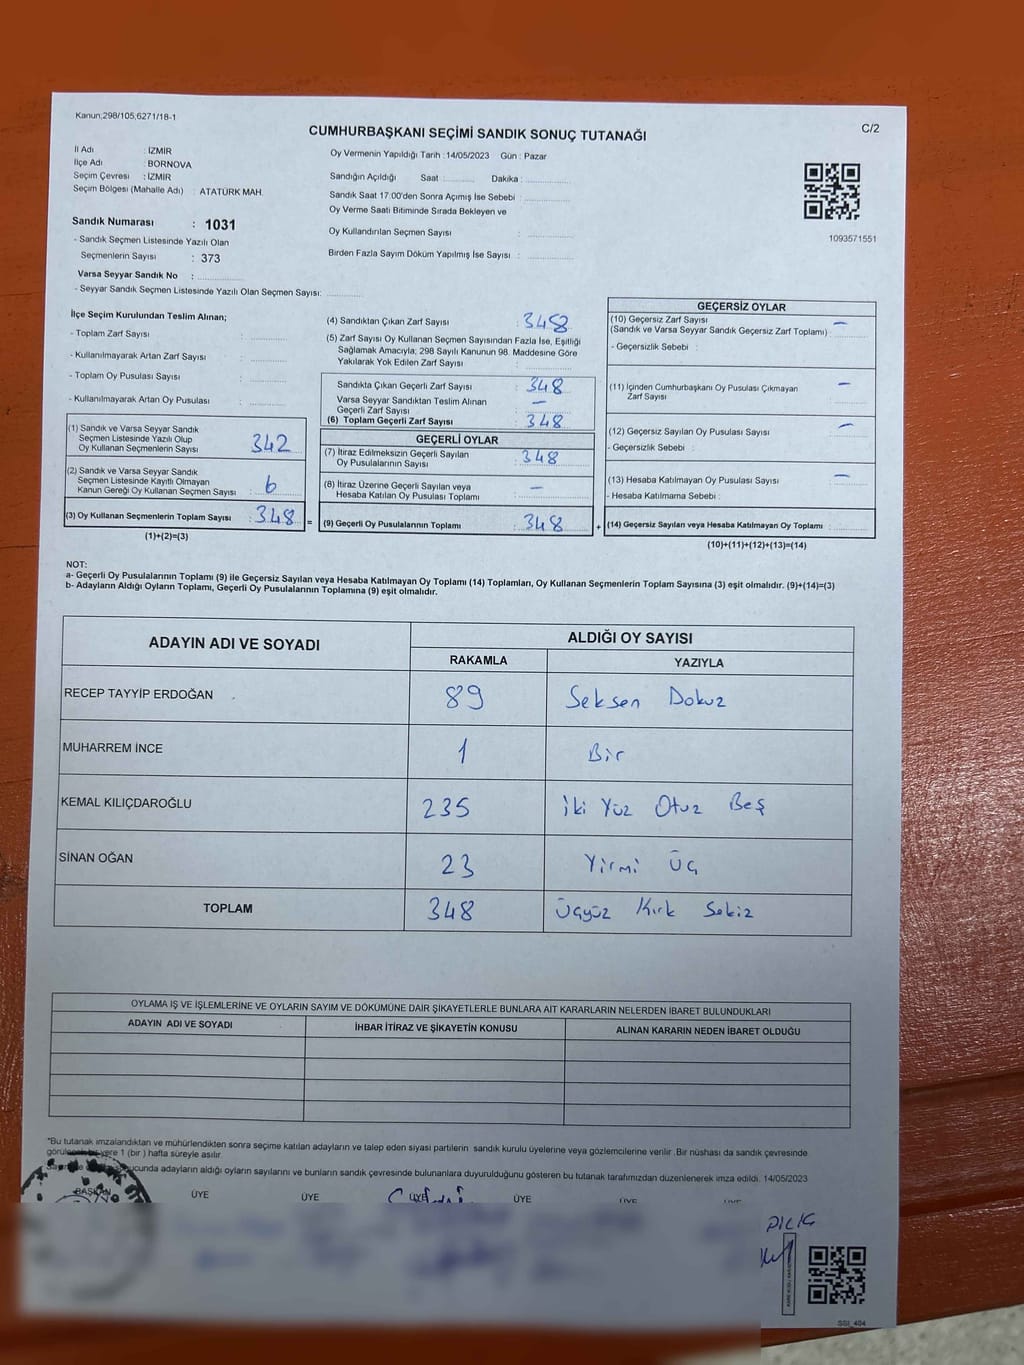 Kanun;298/105,6271/18-1
C/2
CUMHURBAŞKANI SEÇİMİ SANDIK SONUÇ TUTANAĞI
İl Adı : İZMİR
İlçe Adı : BORNOVA
Seçim Çevresi : İZMİR
Seçim Bölgesi (Mahalle Adı) : ATATÜRK MAH.
Sandık Numarası : 1031
- Sandık Seçmen Listesinde Yazılı Olan
Seçmenlerin Sayısı : 373
Varsa Seyyar Sandık No :
- Seyyar Sandık Seçmen Listesinde Yazılı Olan Seçmen Sayısı:
Oy Vermenin Yapıldığı Tarih : 14/05/2023 Gün : Pazar
Sandığın Açıldığı Saat : Dakika :
Sandık Saat 17:00'den Sonra Açımış İse Sebebi :
Oy Verme Saati Bitiminde Sırada Bekleyen ve
Oy Kullandırılan Seçmen Sayısı :
Birden Fazla Sayım Döküm Yapılmış İse Sayısı :
1093571551
İlçe Seçim Kurulundan Teslim Alınan;
- Toplam Zarf Sayısı :
- Kullanılmayarak Artan Zarf Sayısı :
- Toplam Oy Pusulası Sayısı :
- Kullanılmayarak Artan Oy Pusulası :
(1) Sandık ve Varsa Seyyar Sandık
Seçmen Listesinde Yazılı Olup
Oy Kullanan Seçmenlerin Sayısı : 342
(2) Sandık ve Varsa Seyyar Sandık
Seçmen Listesinde Kayıtlı Olmayan
Kanun Gereği Oy Kullanan Seçmen Sayısı : 6
(3) Oy Kullanan Seçmenlerin Toplam Sayısı : 348 =
(1)+(2)=(3)
(4) Sandıktan Çıkan Zarf Sayısı : 348
(5) Zarf Sayısı Oy Kullanan Seçmen Sayısından Fazla İse, Eşitliği
Sağlamak Amacıyla; 298 Sayılı Kanunun 98. Maddesine Göre
Yakılarak Yok Edilen Zarf Sayısı :
Sandıkta Çıkan Geçerli Zarf Sayısı : 348
Varsa Seyyar Sandıktan Teslim Alınan
Geçerli Zarf Sayısı : —
(6) Toplam Geçerli Zarf Sayısı : 348
GEÇERLİ OYLAR
(7) İtiraz Edilmeksizin Geçerli Sayılan
Oy Pusulalarının Sayısı : 348
(8) İtiraz Üzerine Geçerli Sayılan veya
Hesaba Katılan Oy Pusulası Toplamı : —
(9) Geçerli Oy Pusulalarının Toplamı : 348 +
GEÇERSİZ OYLAR
(10) Geçersiz Zarf Sayısı
(Sandık ve Varsa Seyyar Sandık Geçersiz Zarf Toplamı) : —
- Geçersizlik Sebebi :
(11) İçinden Cumhurbaşkanı Oy Pusulası Çıkmayan
Zarf Sayısı : —
(12) Geçersiz Sayılan Oy Pusulası Sayısı : —
- Geçersizlik Sebebi :
(13) Hesaba Katılmayan Oy Pusulası Sayısı : —
- Hesaba Katılmama Sebebi :
(14) Geçersiz Sayılan veya Hesaba Katılmayan Oy Toplamı :
(10)+(11)+(12)+(13)=(14)
NOT:
a- Geçerli Oy Pusulalarının Toplamı (9) ile Geçersiz Sayılan veya Hesaba Katılmayan Oy Toplamı (14) Toplamları, Oy Kullanan Seçmenlerin Toplam Sayısına (3) eşit olmalıdır. (9)+(14)=(3)
b- Adayların Aldığı Oyların Toplamı, Geçerli Oy Pusulalarının Toplamına (9) eşit olmalıdır.
ADAYIN ADI VE SOYADI ALDIĞI OY SAYISI
RAKAMLA YAZIYLA
RECEP TAYYİP ERDOĞAN 89 Seksen Dokuz
MUHARREM İNCE 1 Bir
KEMAL KILIÇDAROĞLU 235 İki Yüz Otuz Beş
SİNAN OĞAN 23 Yirmi Üç
TOPLAM 348 Üçyüz Kırk Sekiz
OYLAMA İŞ VE İŞLEMLERİNE VE OYLARIN SAYIM VE DÖKÜMÜNE DAİR ŞİKAYETLERLE BUNLARA AİT KARARLARIN NELERDEN İBARET BULUNDUKLARI
ADAYIN ADI VE SOYADI İHBAR İTİRAZ VE ŞİKAYETİN KONUSU ALINAN KARARIN NEDEN İBARET OLDUĞU
"Bu tutanak imzalandıktan ve mühürlendikten sonra seçime katılan adayların ve talep eden siyasi partilerin sandık kurulu üyelerine veya gözlemcilerine verilir. Bir nüshası da sandık çevresinde
bir yere 1 (bir ) hafta süreyle asılır.
adayların aldığı oyların sayılarını ve bunların sandık çevresinde bulunanlara duyurulduğunu gösteren bu tutanak tarafımızdan düzenlenerek imza edildi. 14/05/2023
BAŞKAN ÜYE ÜYE ÜYE ÜYE ÜYE ÜYE
SSI_404